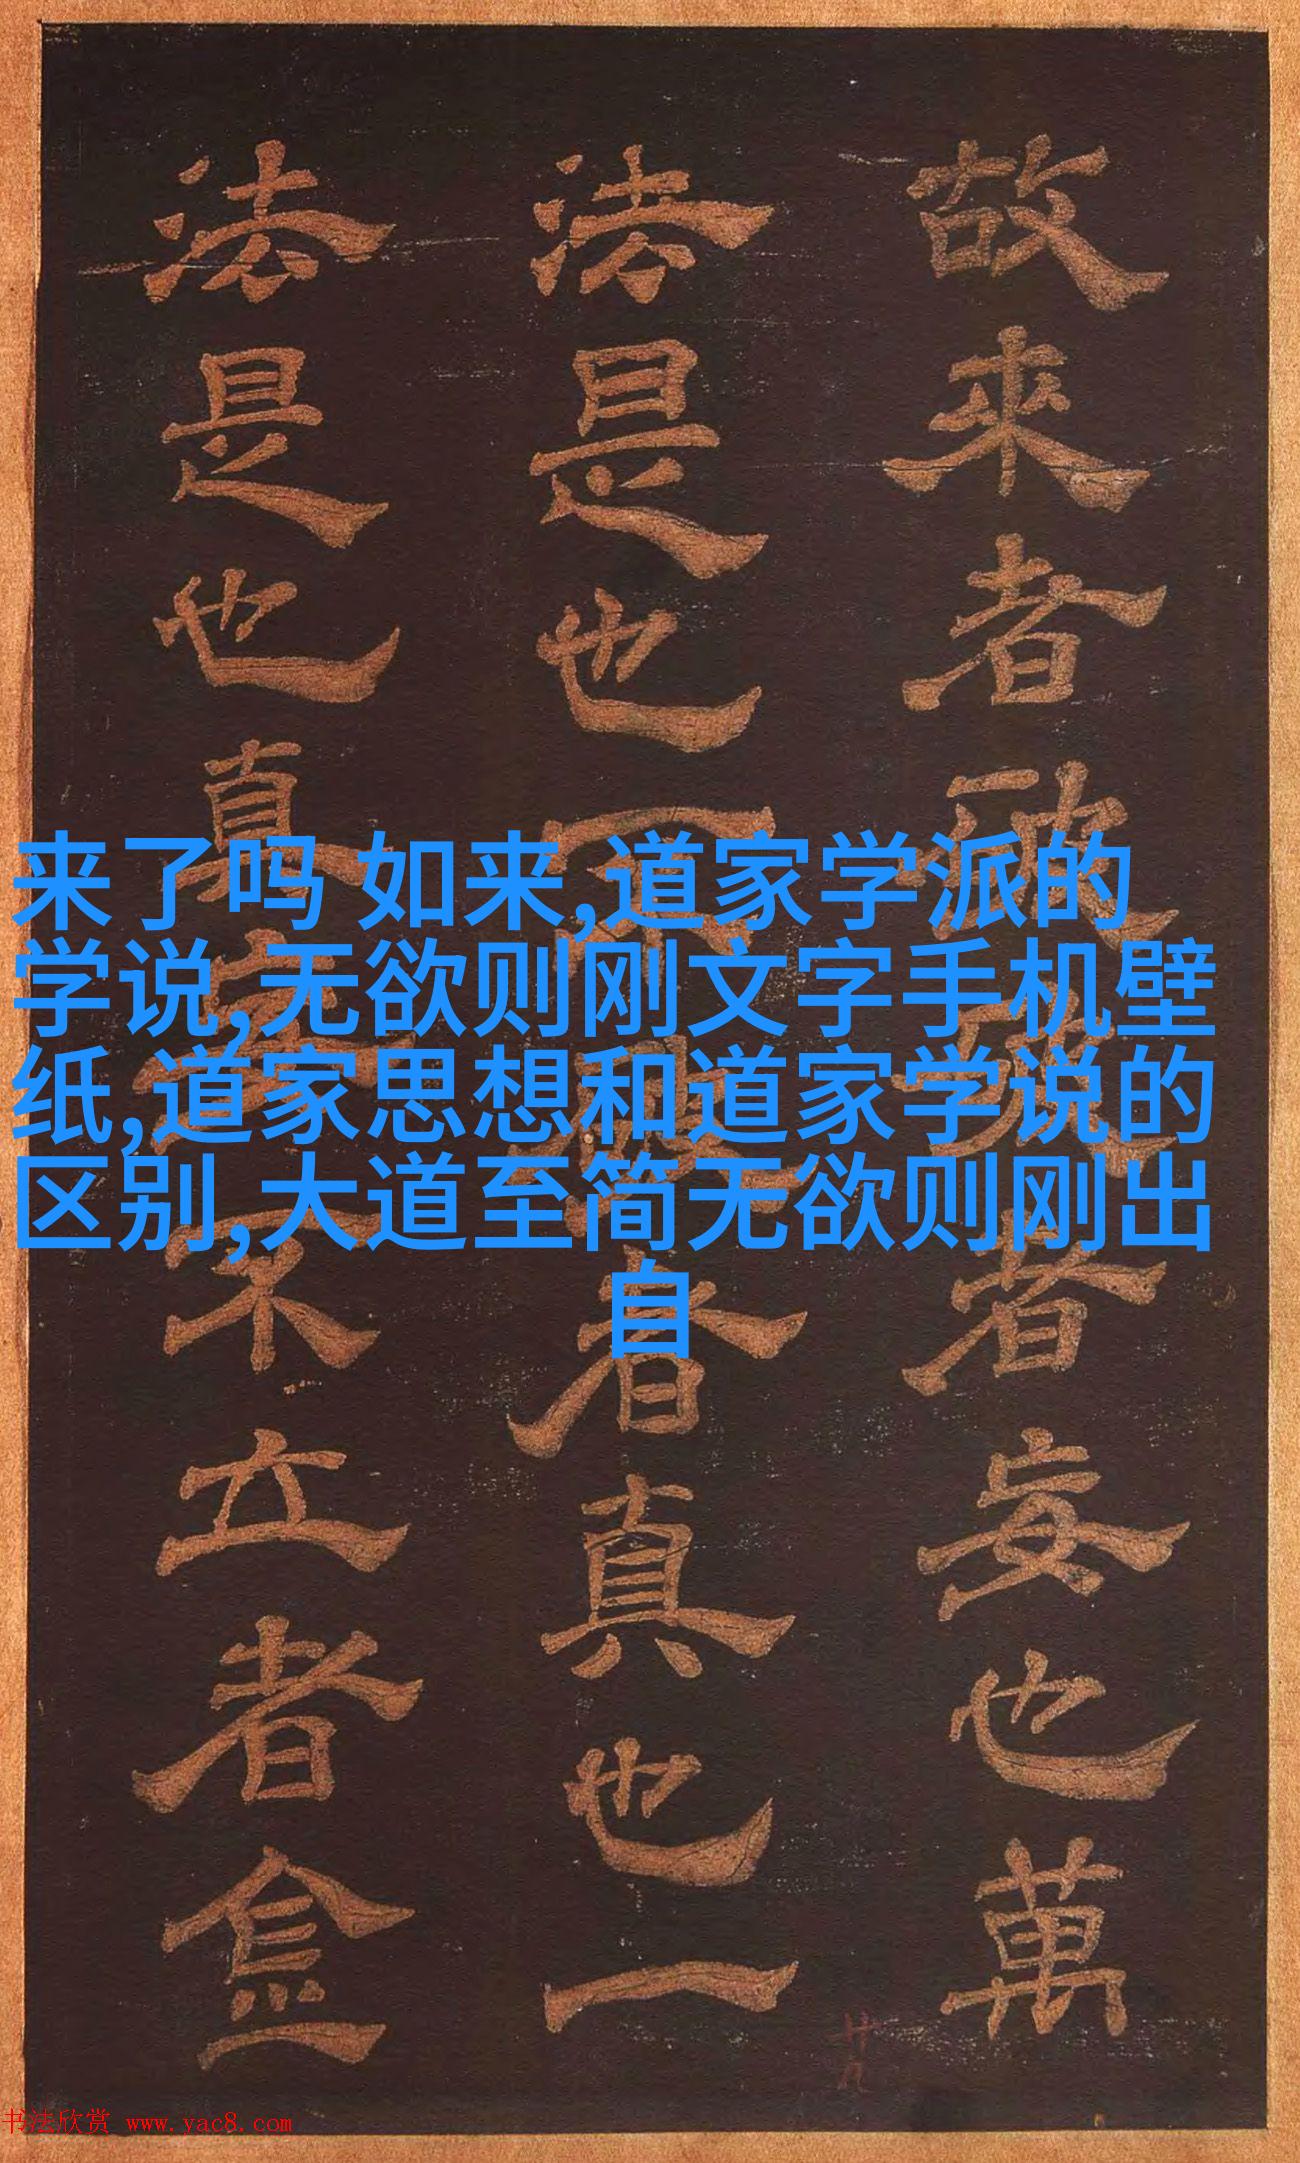 故來者
者妄也萬
法是也
者真也一
法是也真
不立者
来了吗 如来,道家学派的
学说,无欲则刚文字手机壁
纸,道家思想和道家学说的
区别,大道至简无欲则刚出
自
书法欣赏 www.yac8.com